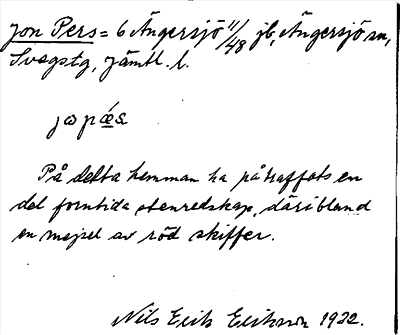 Jon Pers = 6 Ängersjö 11/48 jb, Ängersjö sn,
Svegstg, Jämtl. l.
På detta hemman ha påträffats en
del forntida stenredskap, däribland
en mejsel av röd skiffer.
Nils Erik Erikson 1922.